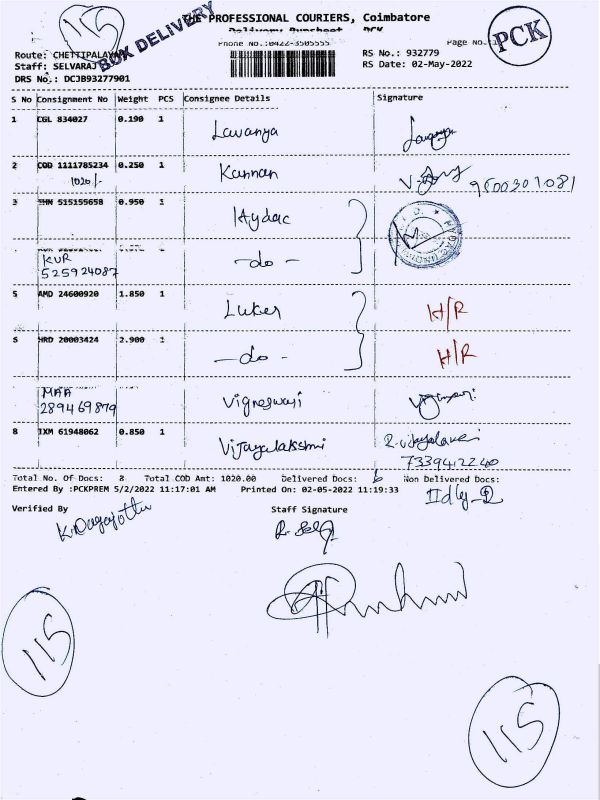 THE PROFESSIONAL COURIERS, Coimbatore
115
BOX DELIVERY
Delivery Runsheet PCK
PCK
Phone No.:0422-3505555
Page No.:1
Route: CHETTIPALAYAM
Staff: SELVARAJ
DRS No.: DCJB93277901
RS No.: 932779
RS Date: 02-May-2022
S No Consignment No Weight PCS Consignee Details Signature
1 CGL 834027 0.190 1 Lavanya
2 COD 1111785234 0.250 1 Kannan
1020/- 9500301081
3 515155658 0.950 1 Hydac
KUR
525924087 -do-
5 AMD 24600920 1.850 1 Luker H/R
HRD 20003424 2.900 1 -do- H/R
MAA
289469879 Vigneswaji
8 IXM 61948062 0.850 1 Vijayalakshmi
7339412240
Total No. Of Docs: 8 Total COD Amt: 1020.00 Delivered Docs: 6 Non Delivered Docs:
Entered By :PCKPREM 5/2/2022 11:17:01 AM Printed On: 02-05-2022 11:19:33
IIdly-2
Verified By Staff Signature
115
115